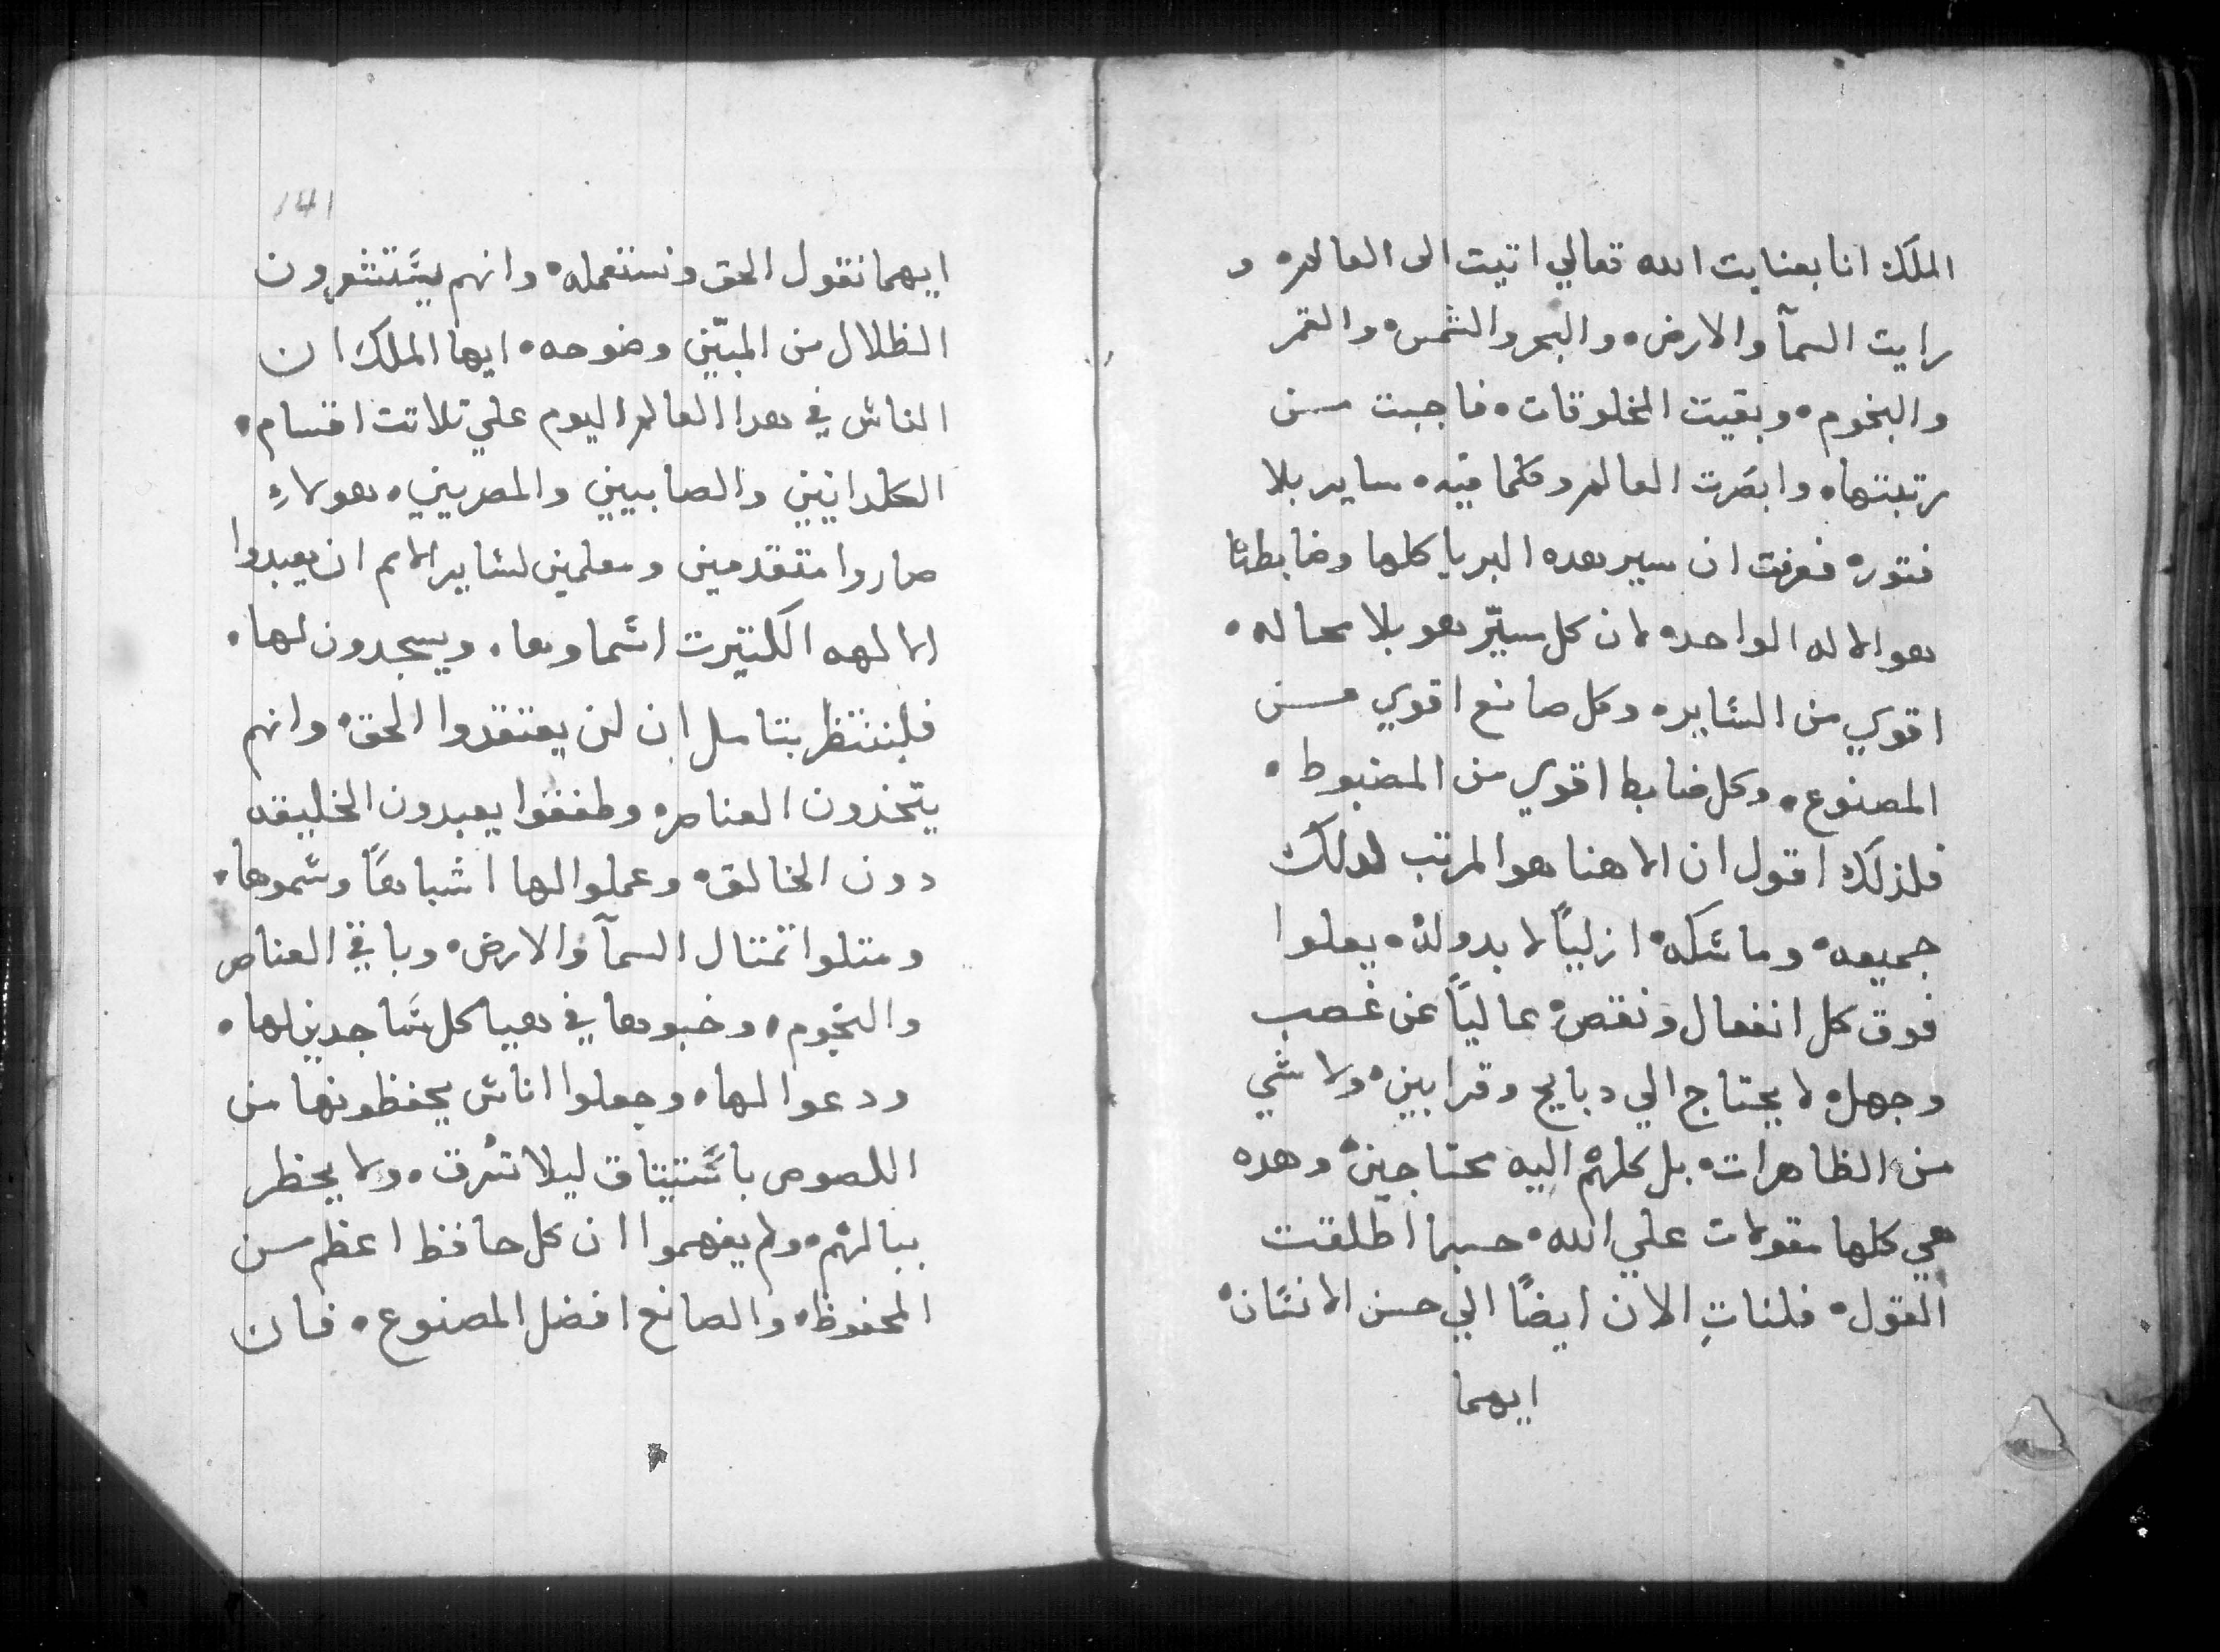 الملك انا بعنايت الله تعالي اتيت الى العالم. و
رايت السمآ والارض. والبحر والشمس. والقمر
والنجوم. وبقيت المخلوقات. فاجبت من
رتبتها. وابصرت العالم وكلما فيه. ساير بلا
فتور. فعرفت ان سير هده البريا كلها وضابطها
هو الاله الواحد. لان كل سيّر هو بلا محاله.
اقوي من الساير. وكل صانع اقوي من
المصنوع. وكل ضابط اقوي من المضبوط.
فلذلك اقول ان الاهنا هو المرتب لدلك
جميعه. وماسكه. ازليًا لا بدو له. يعلوا
فوق كل انفعال ونقص. عاليًا عن غصب
وجهل. لا يحتاج الي دبايح وقرابين. ولا شي
من الظاهرات. بل كلهم اليه محتاجين. وهده
هي كلها مقولات علي الله. حسبما اطلقت
القول. فلناتِ الان ايضًا الي حسن الانسان.
ايهما
141
ايهما نقول الحق ونستعمله. وانهم يستثيرون
الظلال من المبيّن وضوحه. ايها الملك ان
الناس في هدا العالم اليوم علي تلاتت اقسام.
الكلدانيين والصابيين والمصريين. هولاءِ
صاروا متقدمين ومعلمين لساير الامم ان يعبدوا
الالهه الكتيرت اسماوها. ويسجدون لها.
فلننتظر بتامل ان لن يعتقدوا الحق. وانهم
يتخدون العناصر. وطفقوا يعبدون الخليقه
دون الخالق. وعملوا لها اشباهًا وسموها.
ومتلوا تمتال السمآ والارض. وباقي العناصر
والنجوم. وخبوها في هياكل ساجدين لها.
ودعوا لها. وجعلوا اناس يحفظونها من
اللصوص باستيتاق ليلا تسرق. ولا يحظر
ببالهم. ولم يفهموا ان كل حافظ اعظم من
المحفوظ. والصانع افضل المصنوع. فان